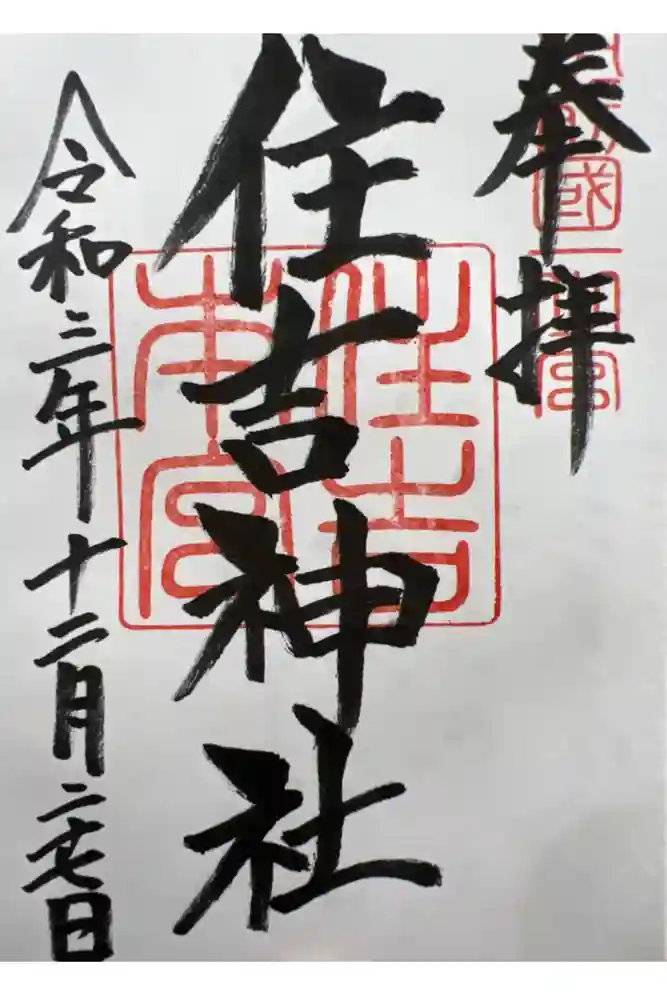 奉拝
國一宮
住吉神社
住吉本宮
令和三年十二月二十七日